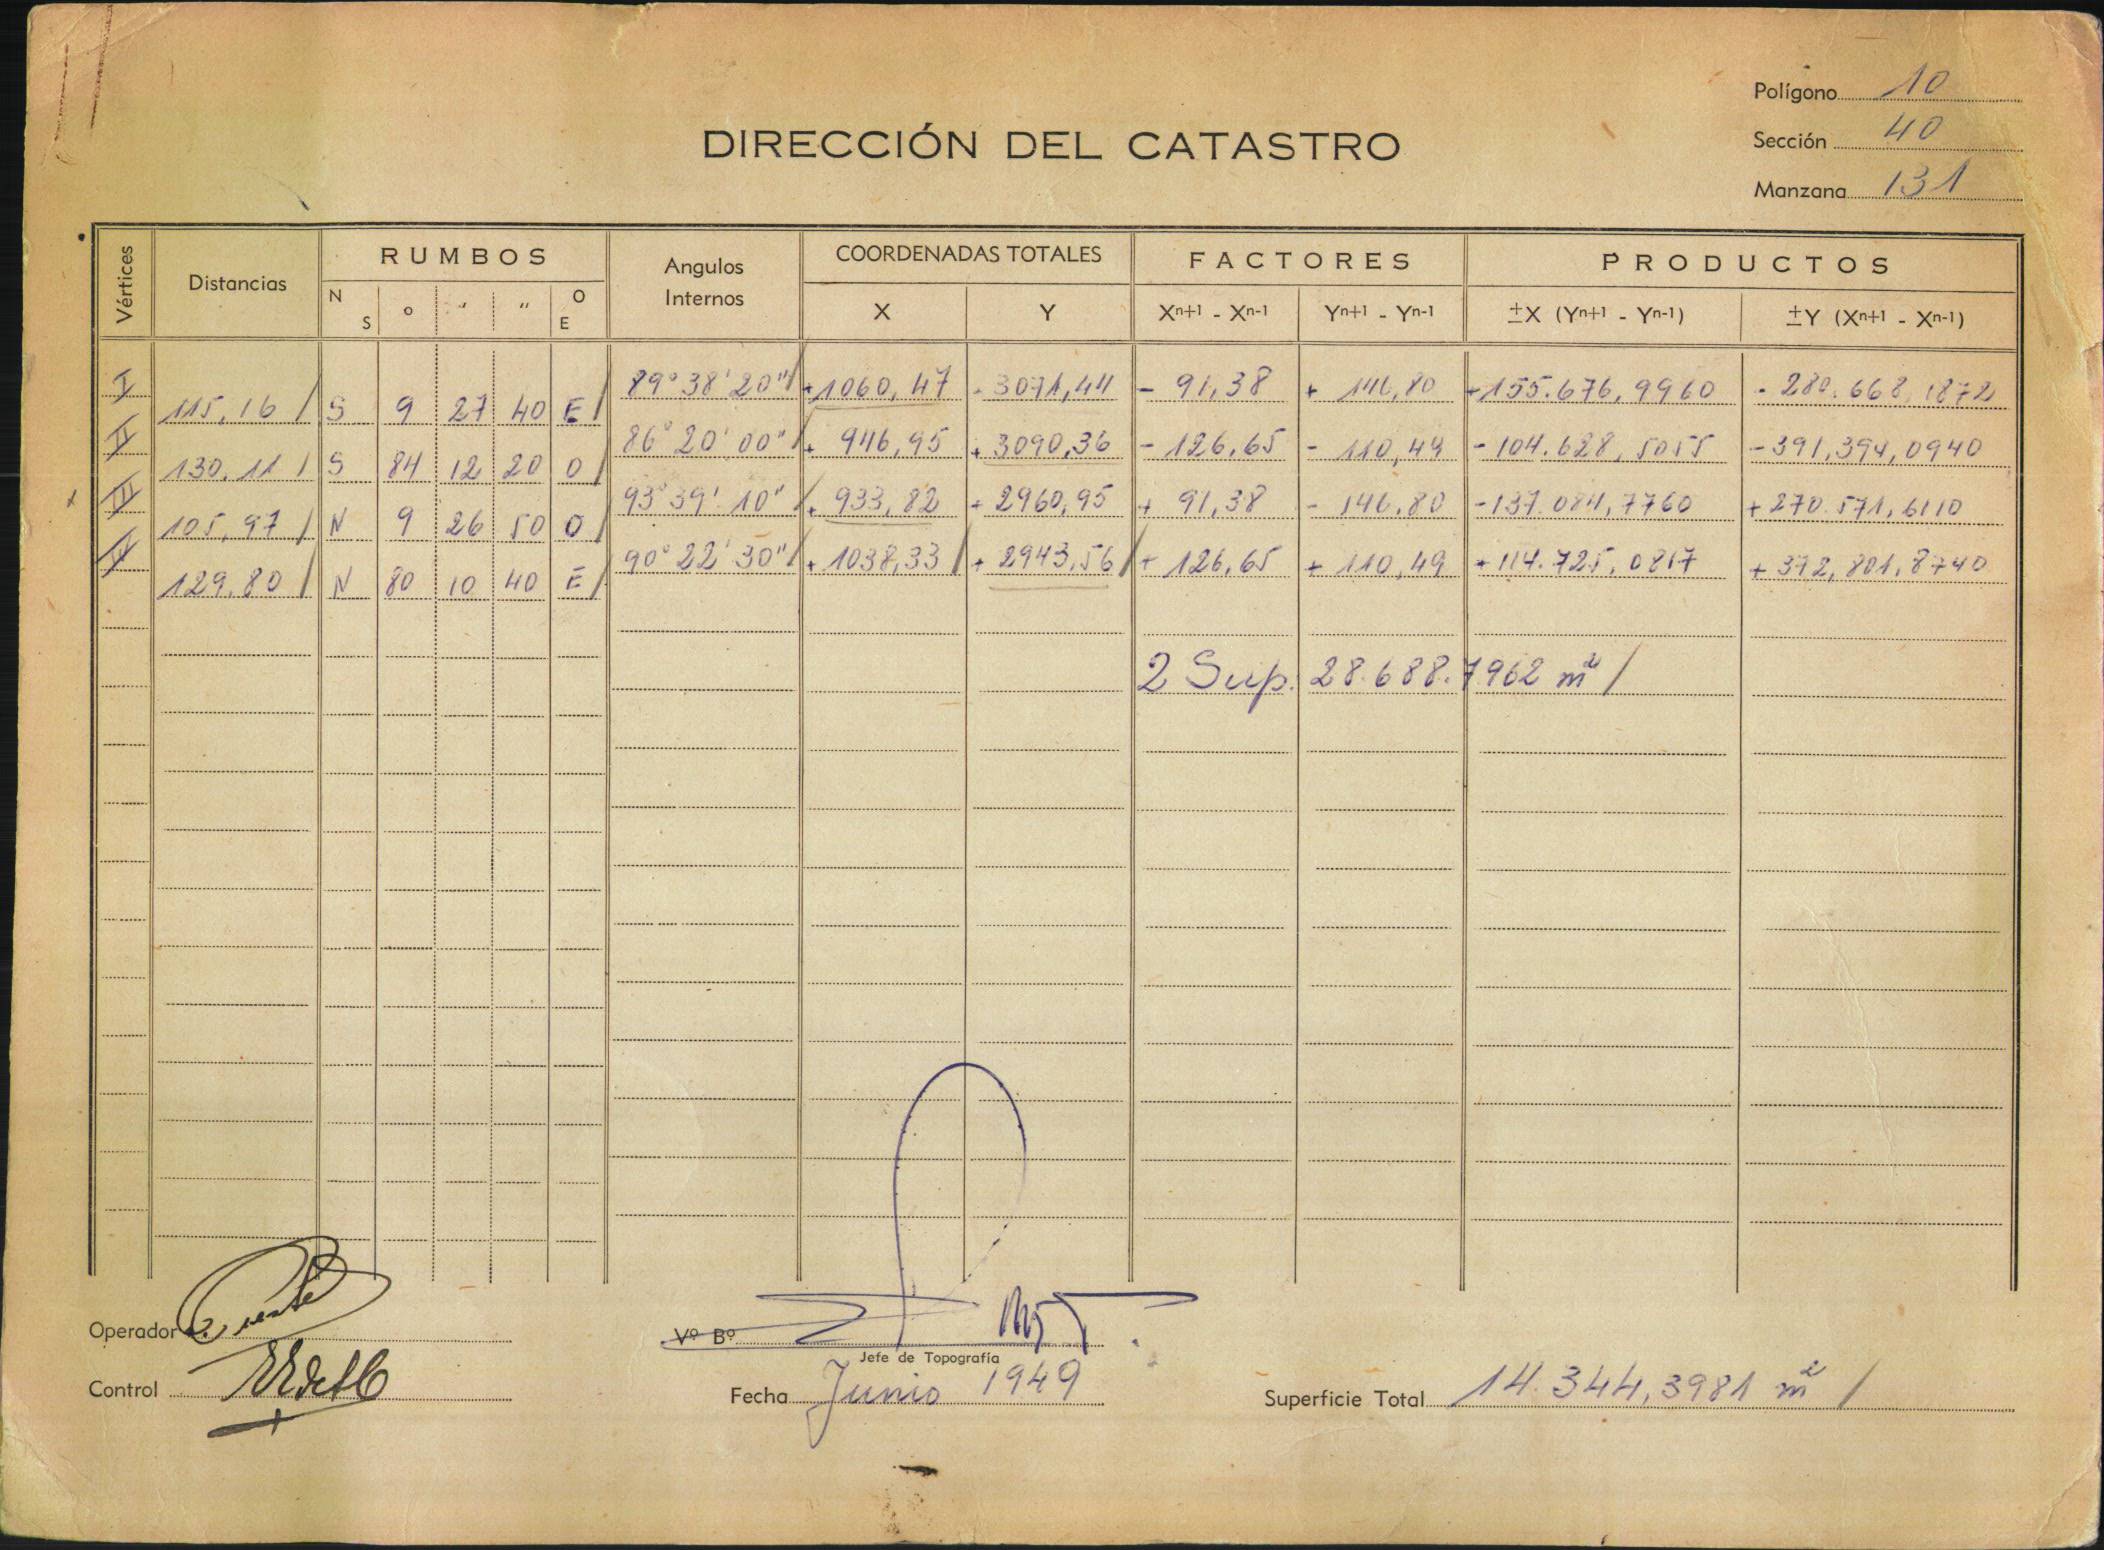 Polígono 10
DIRECCIÓN DEL CATASTRO
Sección 40
Manzana 131
Vértices Distancias RUMBOS Angulos Internos COORDENADAS TOTALES FACTORES PRODUCTOS
N S ° ‘ “ O E X Y Xn+1 - Xn-1 Yn+1 - Yn-1 ±X (Yn+1 - Yn-1) ±Y (Xn+1 - Xn-1)
I 89° 38' 20" / +1060,47 - 3071,44 - 91,38 + 146,80 +155.676,9960 - 280.668,1872
115,16 / S 9 27 40 E /
II 86° 20' 00" / + 946,95 + 3090,36 - 126,65 - 110,49 - 104.628,5055 - 391,394,0940
130,11 / S 84 12 20 O /
III 93° 39' 10" / + 933,82 + 2960,95 + 91,38 - 146,80 - 137.084,7760 + 270.571,6110
105,97 / N 9 26 50 O /
IV 90° 22' 30" / + 1038,33 / + 2943,56 / + 126,65 + 110,49 + 114.725,0817 + 372,801,8740
129,80 / N 80 10 40 E /
2 Sup. 28.688.7962 m² /
Operador
Vº Bº
Jefe de Topografía
Control
Fecha Junio 1949
Superficie Total 14.344,3981 m² /